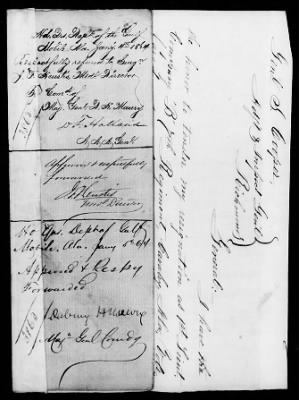 Hd. Qrs. Dept. of the Gulf
Mobile Ala. Jany 4th 1864
Respectfully referred to Surgn
J. F. Heustis Medl Director
By Comd. of
Maj. Genl D. H. Maury
A. A. A. Genl.
Approved & respectfully
forwarded
J F Heustis
Medl Director
Hd Qrs. Dept of Gulf
Mobile, Ala. Jany 5th 64
Approved & Respy
Forwarded
Dabney H Maury
Maj. Genl Comdg
Genl S. Cooper
Adjt & Inspect Genl
Richmond
General:
I have the
the honor to tender my resignation as 1st Lieut.
Company B
Regiment Cavalry